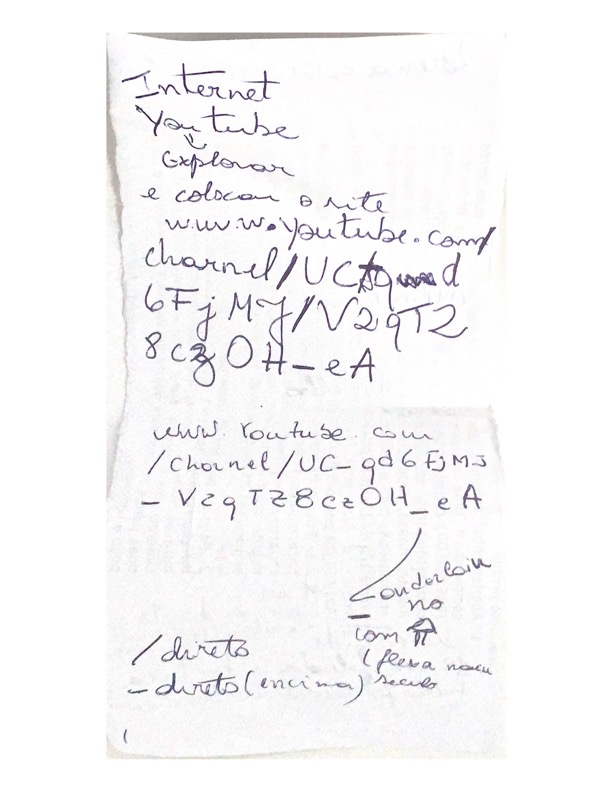 Internet
Youtube
Explorar
e colocar o site
www.youtube.com/
channel/UC
6FjMJ/V2qTZ
8czOH_eA
www.Youtube.com
/channel/UC_qd6FjMJ
_VzqTZ8czOH_eA
onderlain
no
com
/direto
(flexa
_direto(encima)